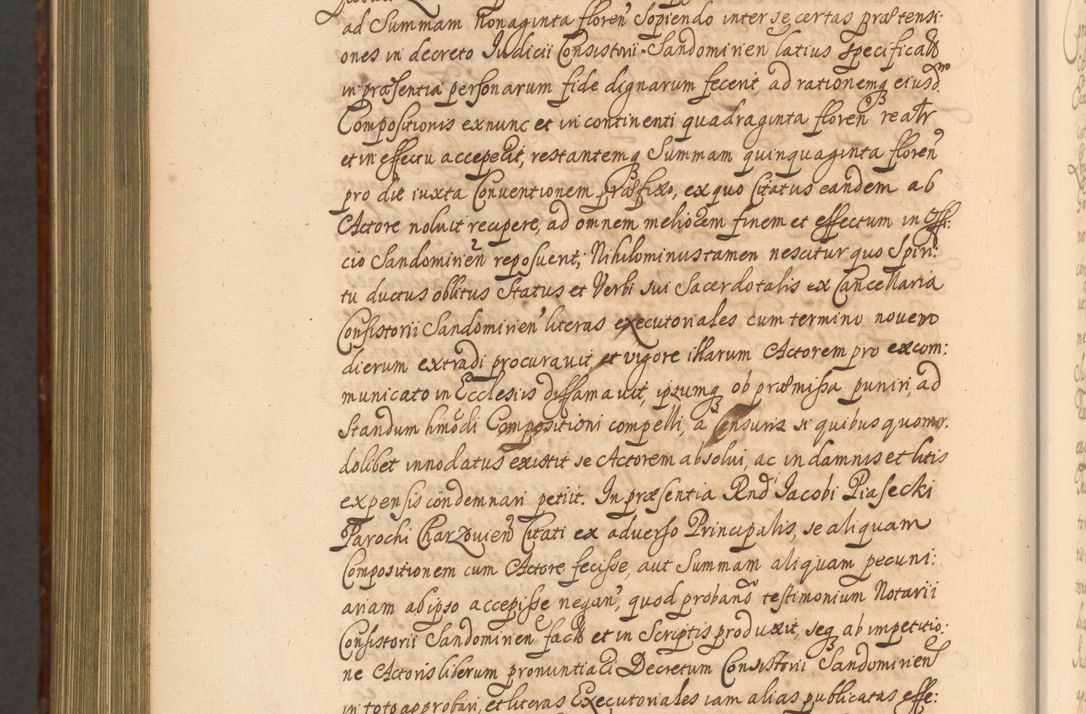 ad Summam nonaginta floren̄ sopiendo inter se certas prætensi:
ones in decreto Iudicii Consistorii Sandomirien̄ latius specificatas
in præsentia personarum fide dignarum fecerit, ad rationemq̢ eiusd.
Compositionis exnunc et in continenti quadraginta floren̄ realtr
et in effectu acceperit, restantemq̢ Summam quinquaginta floren̄
pro die iuxta Conventionem præfixo, ex quo Citatus eandem ab
Actore noluit recipere, ad omnem meliorem finem et effectum in Offi:
cio Sandomirien̄ reposuerit; Nihilominus tamen nescitur quo Spiri:
tu ductus oblitus Status et Verbi sui Sacerdotalis ex Cancellaria
Consistorii Sandomirien̄ literas executoriales cum termino novem
dierum extradi procuravit, et vigore illarum Actorem pro excom:
municato in Ecclesiis diffamavit, ipsumq̢ ob præmissa puniri, ad
standum hm̄odi Compositioni compelli, a Censuris si quibus quomo:
dolibet innodatus existit se Actorem absolvi, ac in damnis et litis
expensis condemnari petiit. In præsentia Rnd̄i Iacobi Piasecki
Parochi Charzovien̄ Citati ex adverso Principalis, se aliquam
Compositionem cum Actore fecisse, aut Summam aliquam pecuni:
ariam ab ipso accepisse negan̄, quod proband̄o testimonium Notarii
Consistorii Sandomirien̄ facti et in Scriptis produxit, seq̢ ab impetitio:
ne Actoris liberum pronuntiari Decretum Consistorii Sandomirien̄
in toto approbari, et literas Executoriales iam alias publicatas effe: